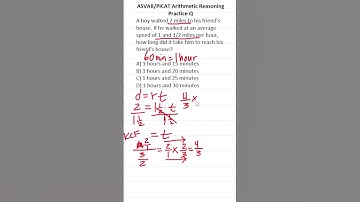 ASVAB/PiCAT Arithmetic Reasoning
Practice Q
A boy walked 2 miles to his friend's
house. If he walked at an average
speed of 1 and 1/2 miles per hour,
how long did it take him to reach his
friend's house?
60min=1hour
A) 1 hours and 15 minutes
B) 1 hours and 20 minutes
C) 1 hours and 25 minutes
D) 1 hours and 30 minutes
d=rt
4/3 x
2 = 1 1/2 t
1 1/2 1 1/2
KCF = t
2/1
3/2
= 2/1 x 2/3 = 4/3